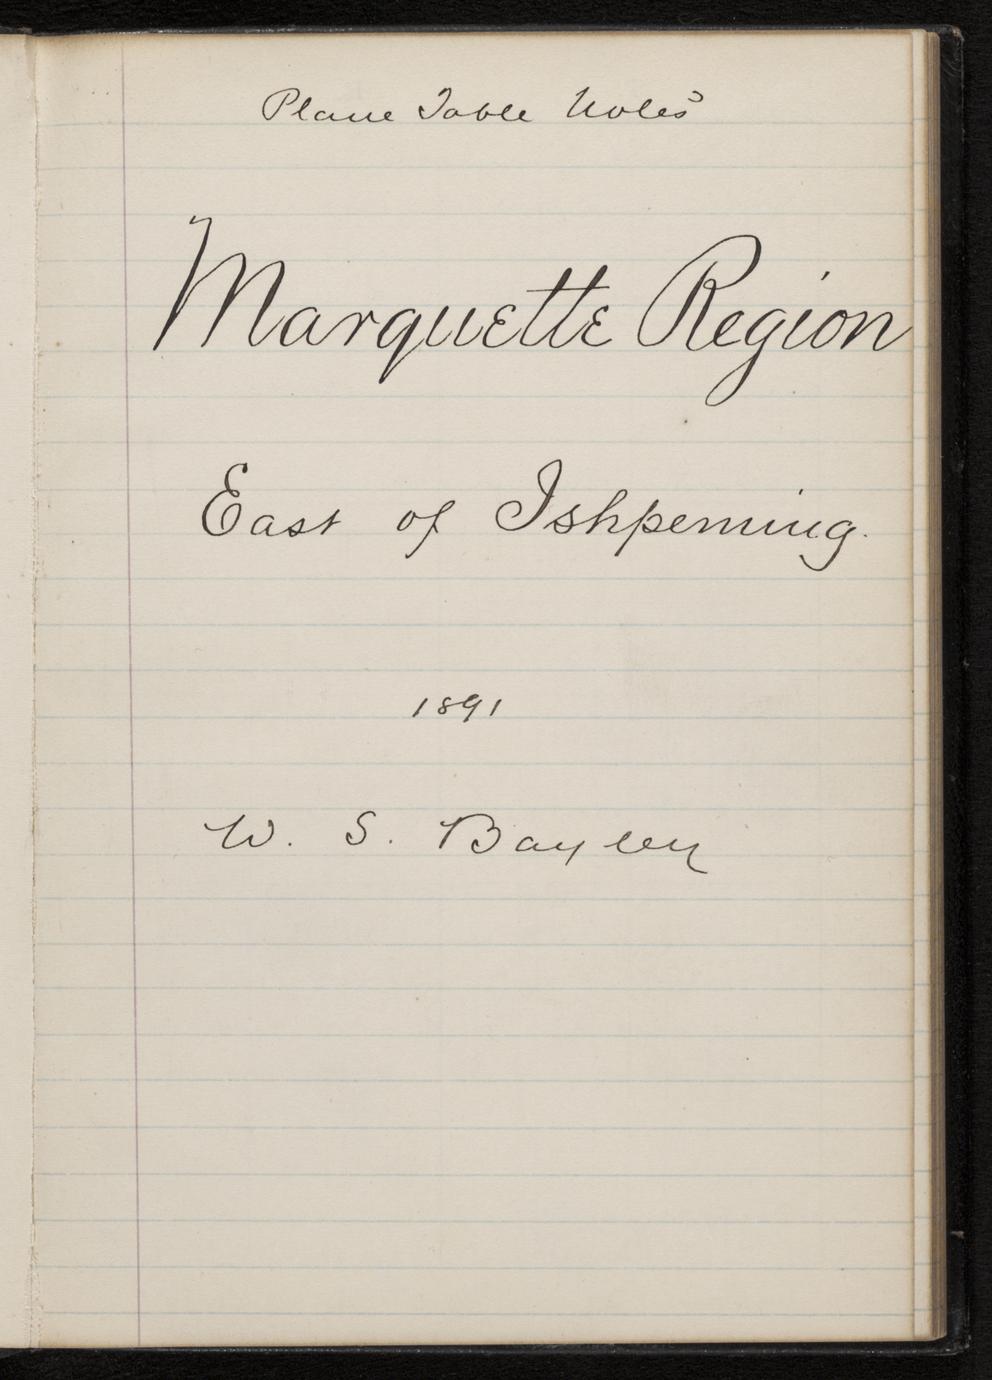 Plane Table Notes
Marquette Region
East of Ishpeming.
1891
W. S. Bayley